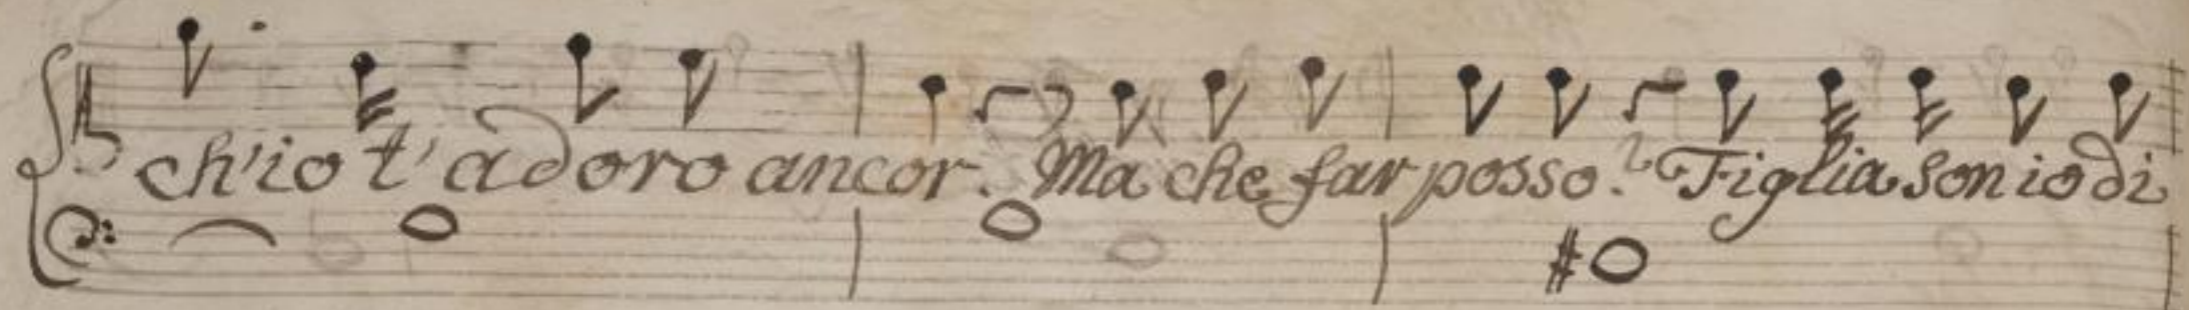 ch'io t'adoro ancor. Ma che far posso? Figlia son io di